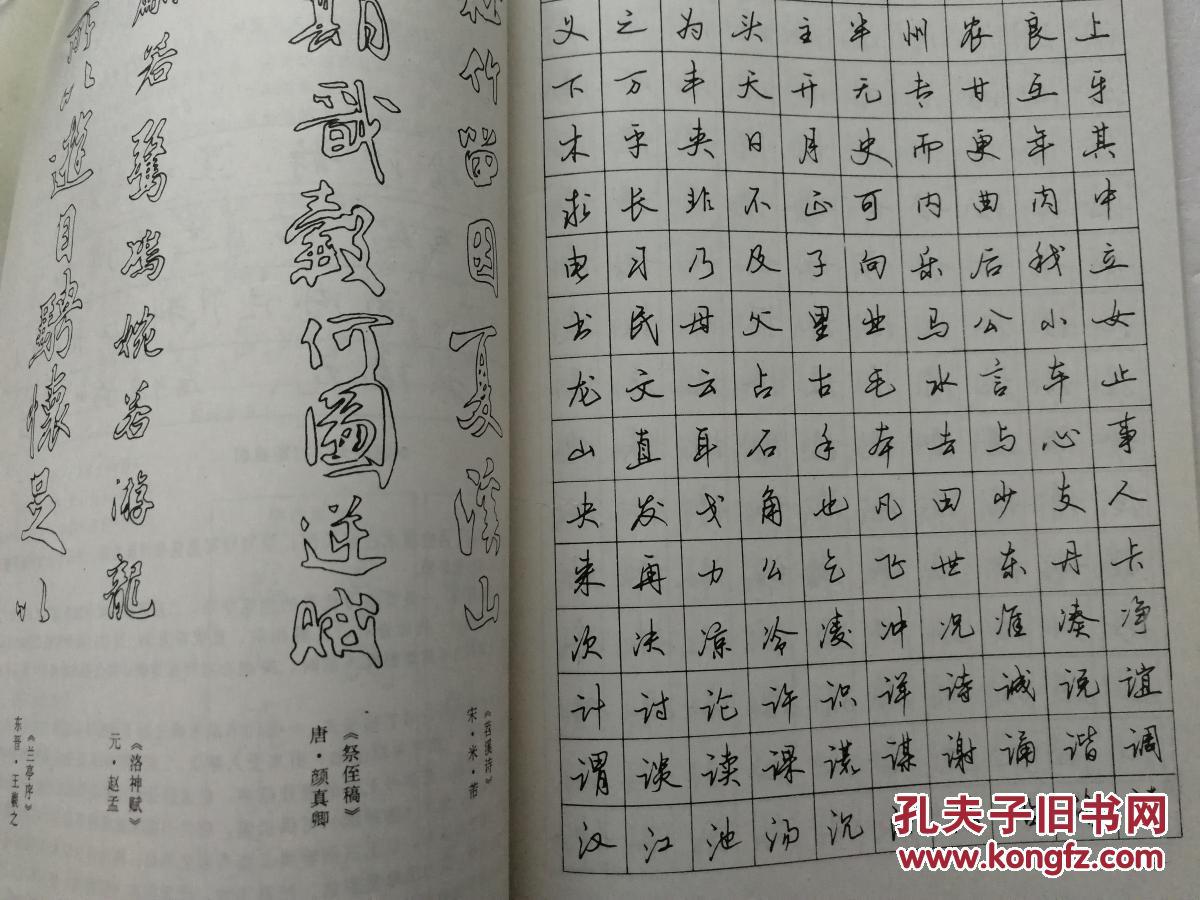 竹留因夏滢山
《苕溪诗》
宋·米·芾
载毂何图逆贼
《祭侄稿》
唐·颜真卿
若惊鸿婉若游龍
《洛神赋》
元·赵孟
所以遊目騁懷是以
《兰亭序》
东晋·王羲之
义之为头主半州农良上
下万丰天开无专甘互牙
木平夹日月史而更年其
求长非不正可内曲肉中
电习乃及子向乐后我立
书民母父里业马公小女
龙文云占古毛水言车止
山直耳石手本去与心事
央发戈角也凡田少支人
来再力么乞飞世东丹卡
次决凉冷凌冲况准凑净
计讨论许识详诗诚说谊
谓谈读课谎谋谢诵谐调
汉江池汤沉
孔夫子旧书网
www.kongfz.com